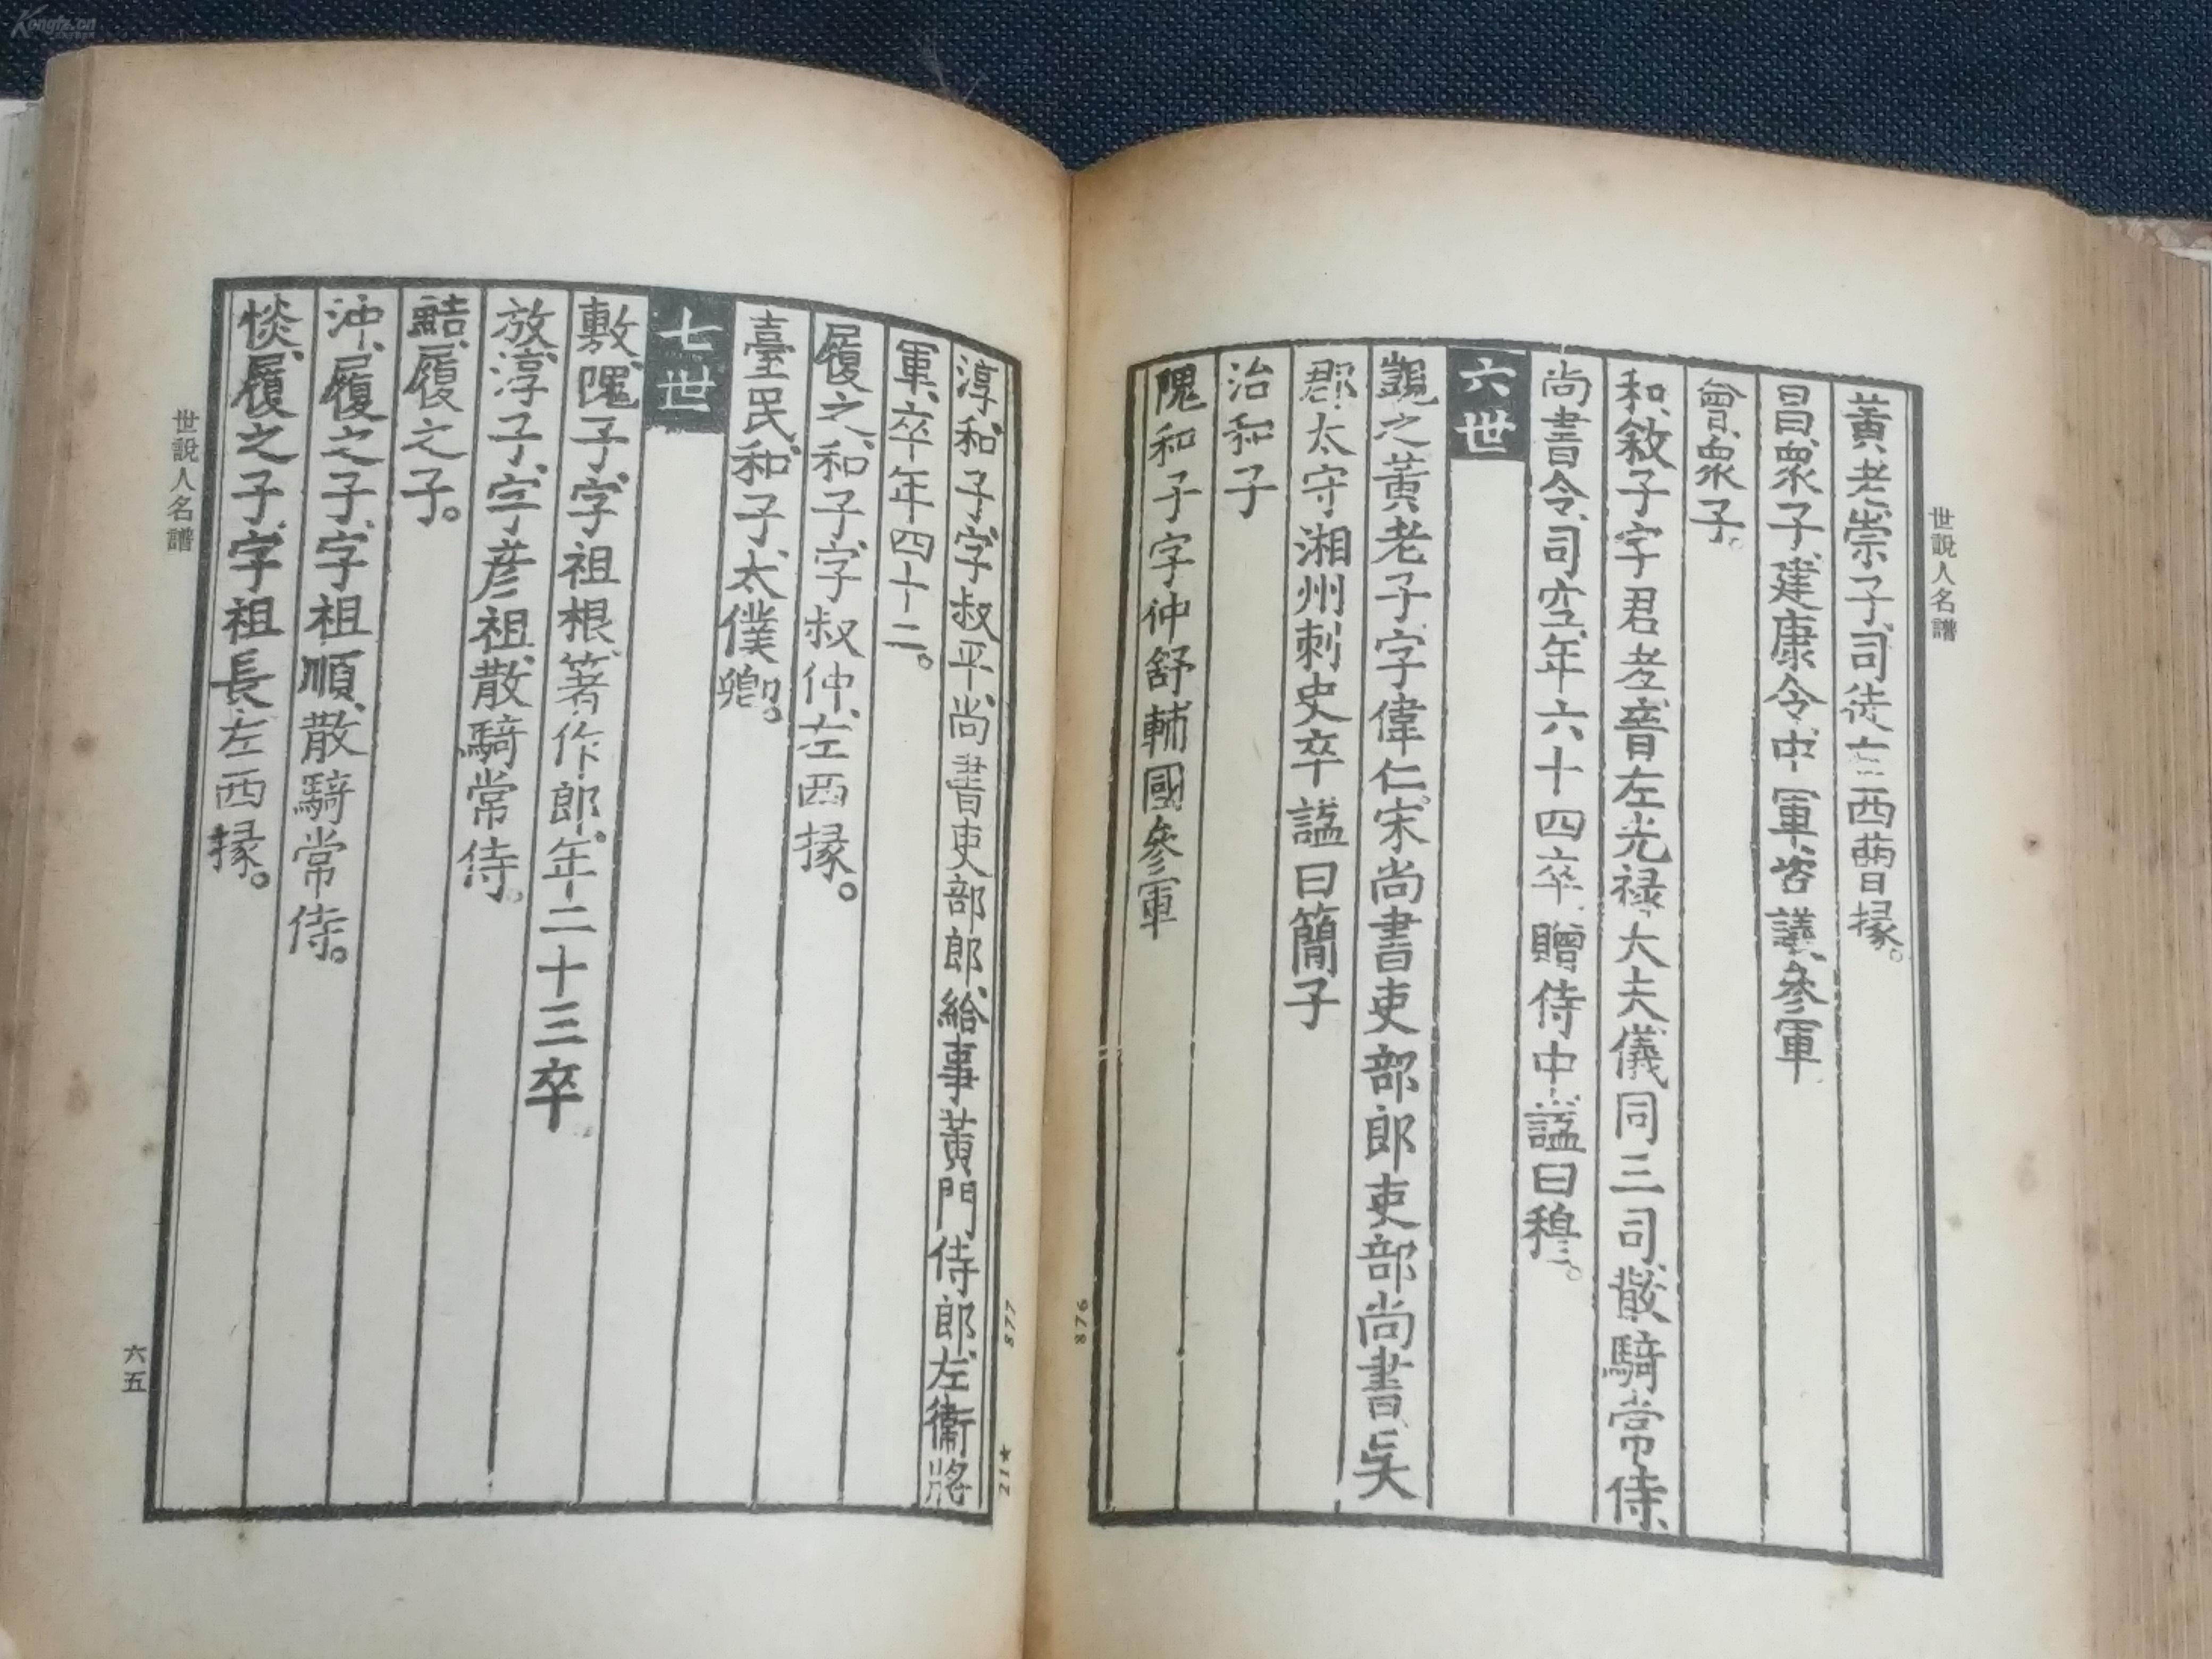 世說人名譜
黃老、崇子、司徒左西曹掾。
冒、衆子、建康令、中軍咨議、參軍
曾、衆子。
和、敘子字君孝、晉左光祿大夫儀同三司、散騎常侍、
尚書令、司空、年六十四卒、贈侍中、諡曰穆。
六世
覬之黃老子、字偉仁、宋尚書吏部郎吏部尚書、吳
郡太守湘州刺史卒諡曰簡子
治和子
隗和子字仲舒輔國參軍
876
877
21★
淳、和子、字叔平、尚書吏部郎、給事黃門侍郎、左衞將
軍、卒年四十二。
履之、和子、字叔仲、左西掾。
臺民、和子、太僕卿。
七世
敷、隗子、字祖根、著作郎、年二十三卒
放、淳子、字彦祖、散騎常侍。
鮚、履之子。
沖、履之子、字祖順、散騎常侍。
惔、履之子、字祖長、左西掾。
世說人名譜
六五
Kongfz.cn